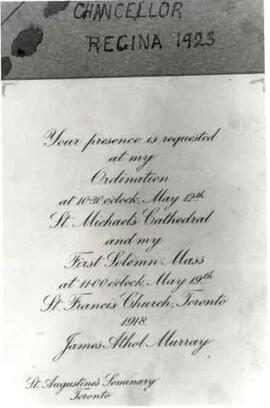 CHANCELLOR
REGINA 1923
Your presence is requested
at my
Ordination
at 10-30 o'clock, May 12th
St. Michaels Cathedral
and my
First Solemn Mass
at 11-00 o'clock, May 19th
St. Francis Church, Toronto
1918
James Athol Murray
St. Augustines Seminary
Toronto